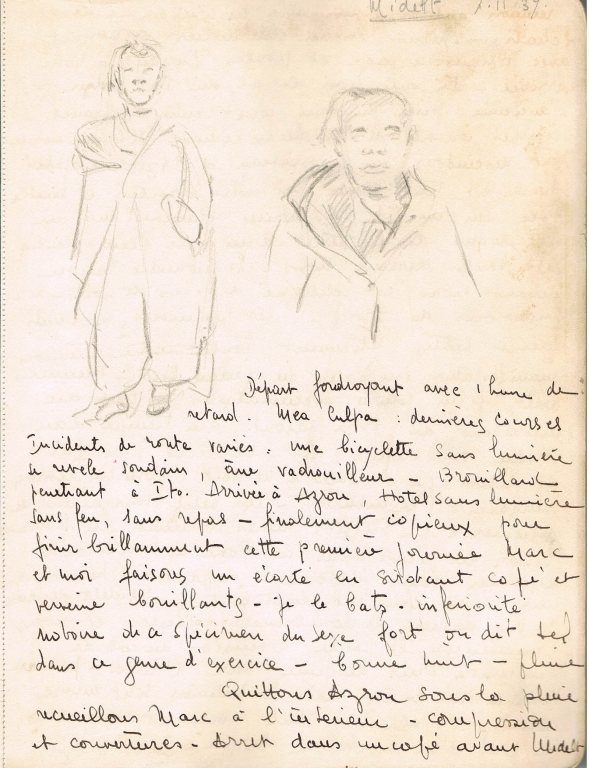 Midelt 7.11.37.
Départ foudroyant avec 1 heure de
retard. Mea Culpa : dernières courses
Incidents de route variés : une bicyclette sans lumière
se revele soudain, âne vadrouilleur - Brouillard
penetrant à Ito. Arrivée à Azrou, Hotel sans lumière
sans feu, sans repas - finalement copieux pour
finir brillamment cette première journée Marc
et moi faisons un écarté en sirotant café et
verveine bouillants - Je le bats. inferiorité
notoire de ce spécimen du sexe fort on dit
dans ce genre d'exercice - bonne nuit - pluie
Quittons Azrou sous la pluie
recueillons Marc à l'intérieur - compression
et couvertures - Arret dans un café avant Midelt